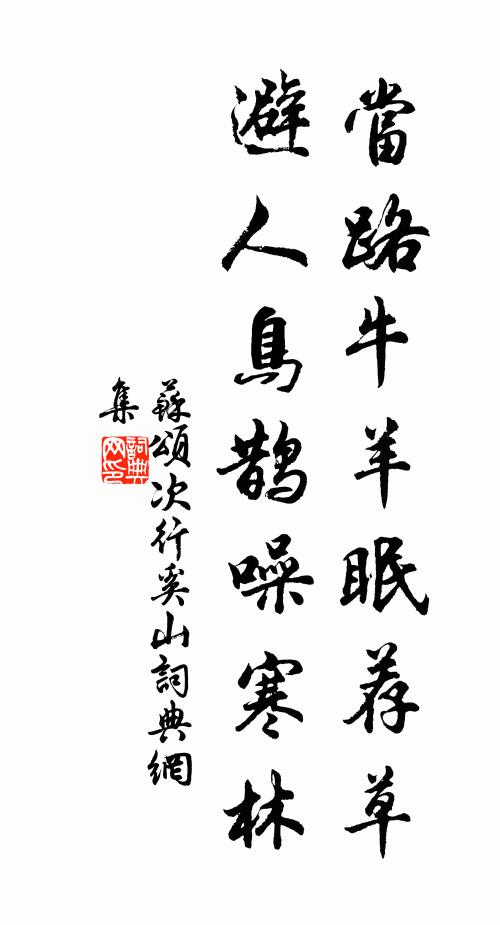 當路牛羊眠荐草
避人鳥鵲噪寒林
蘇頌次行奚山詞典網
集
詞典
网印